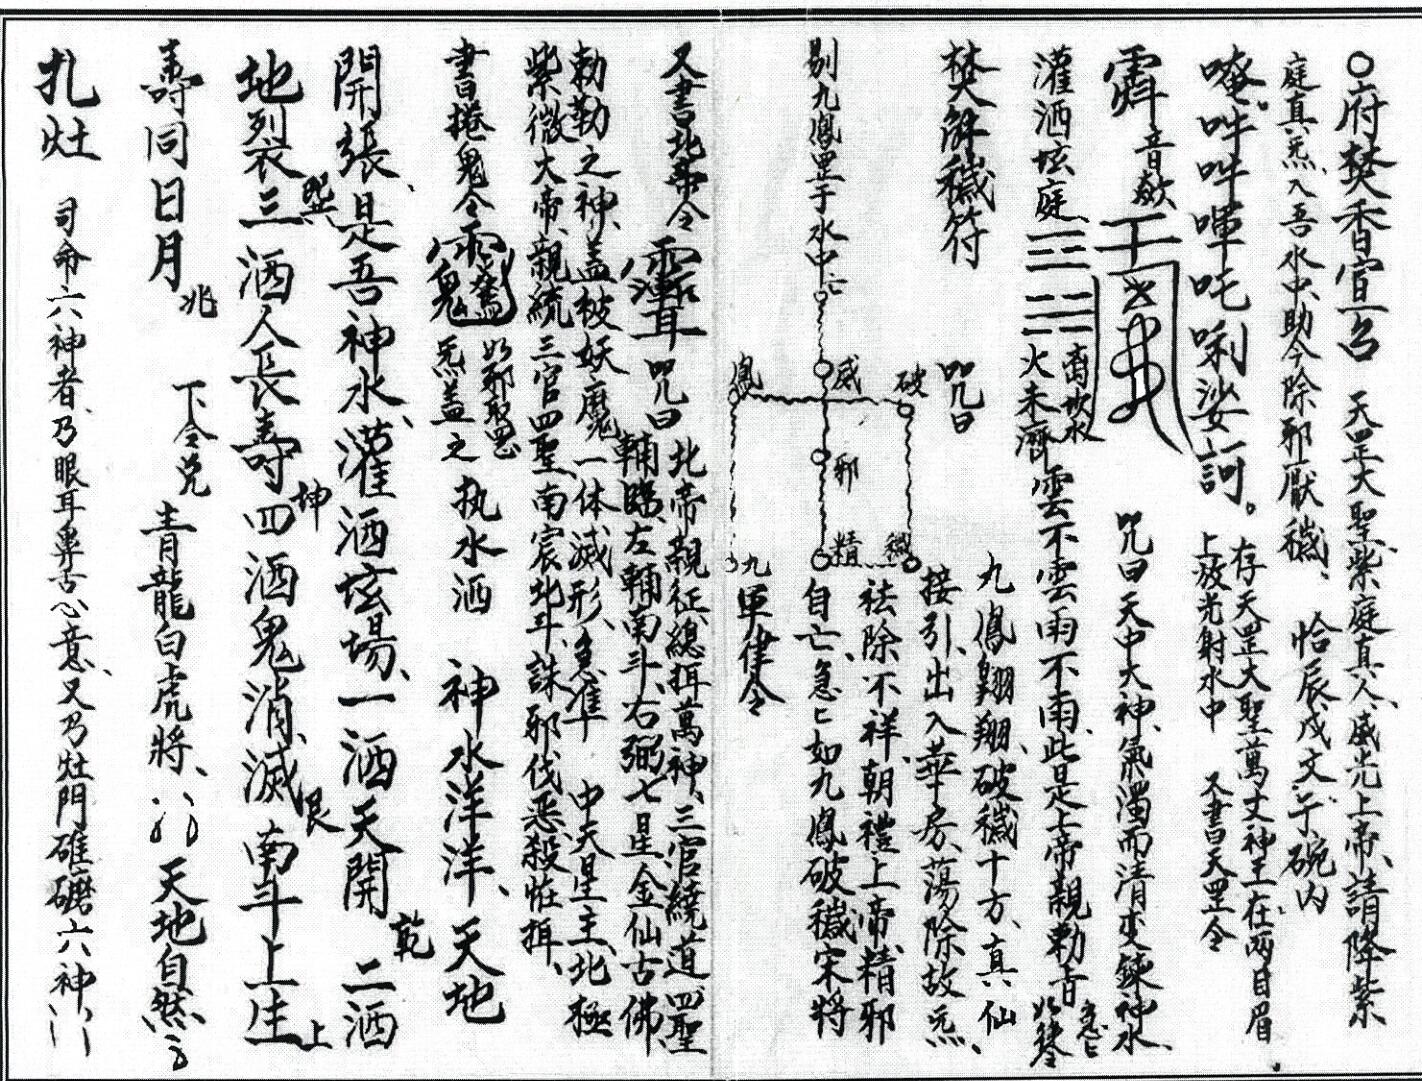 ○府焚香宣召 天罡大聖、紫庭真人、威光上帝、請降紫
庭真炁、入吾水中、助今除邪厭穢、 恰辰戊文午碗内
唵吽吽㖸吒唎娑訶。 存天罡大聖萬丈神王在兩目眉
上放光射水中 又書天罡令
霹 音 咒曰天中大神、氣濁而清变鍊神水、
灌洒坛庭 三三 離坎水火未濟 雲不雲雨不雨、此是上帝親勅旨 急匕如律令
焚解穢符 咒曰 九鳳翱翔、破穢十方、真仙
接引、出入華房、蕩除故炁、
祛除不祥、朝禮上帝、精邪
自亡、急匕如九鳳破穢宋將
軍律令
剔九鳳罡于水中亡
鳳 威 破
邪
九 精 穢
又書北帝令 咒曰 北帝親征、總押萬神、三官繞道、四聖
輔臨、左輔南斗、右弼七星金仙古佛、
勅勒之神、盖被妖魔、一体滅形、急準 中天星主、北極
紫微大帝、親統三官四聖、南宸北斗、誅邪伐惡、殺怪押、
書捲鬼令 以邪聖罡炁盖之 执水洒 神水洋洋、天地
開張、是吾神水、灌洒坛場、一洒天開 乾 二洒
地裂 巽 三洒人長壽 坤 四洒鬼消滅 艮 南斗上生 上
壽同日月 兆 下令兑 青龍白虎將、〻 天地自然〻
扎灶 司命六神者、乃眼耳鼻舌心意、又乃灶門碓磨六神、〻